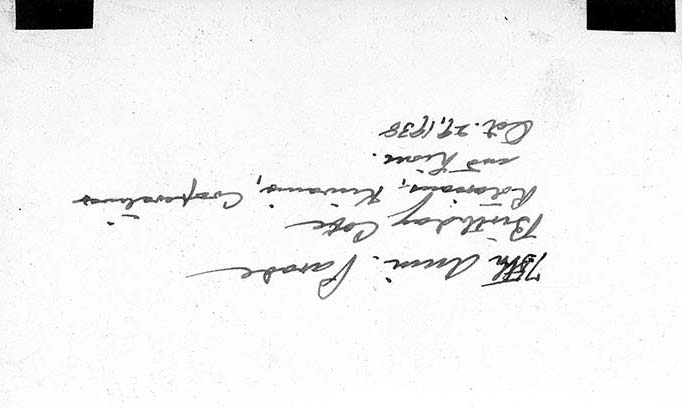 75th Anni. Parade
Birthday Cake
Rotarians, Kiwanis, Cooperatives
and Lions.
Oct. 29, 1938